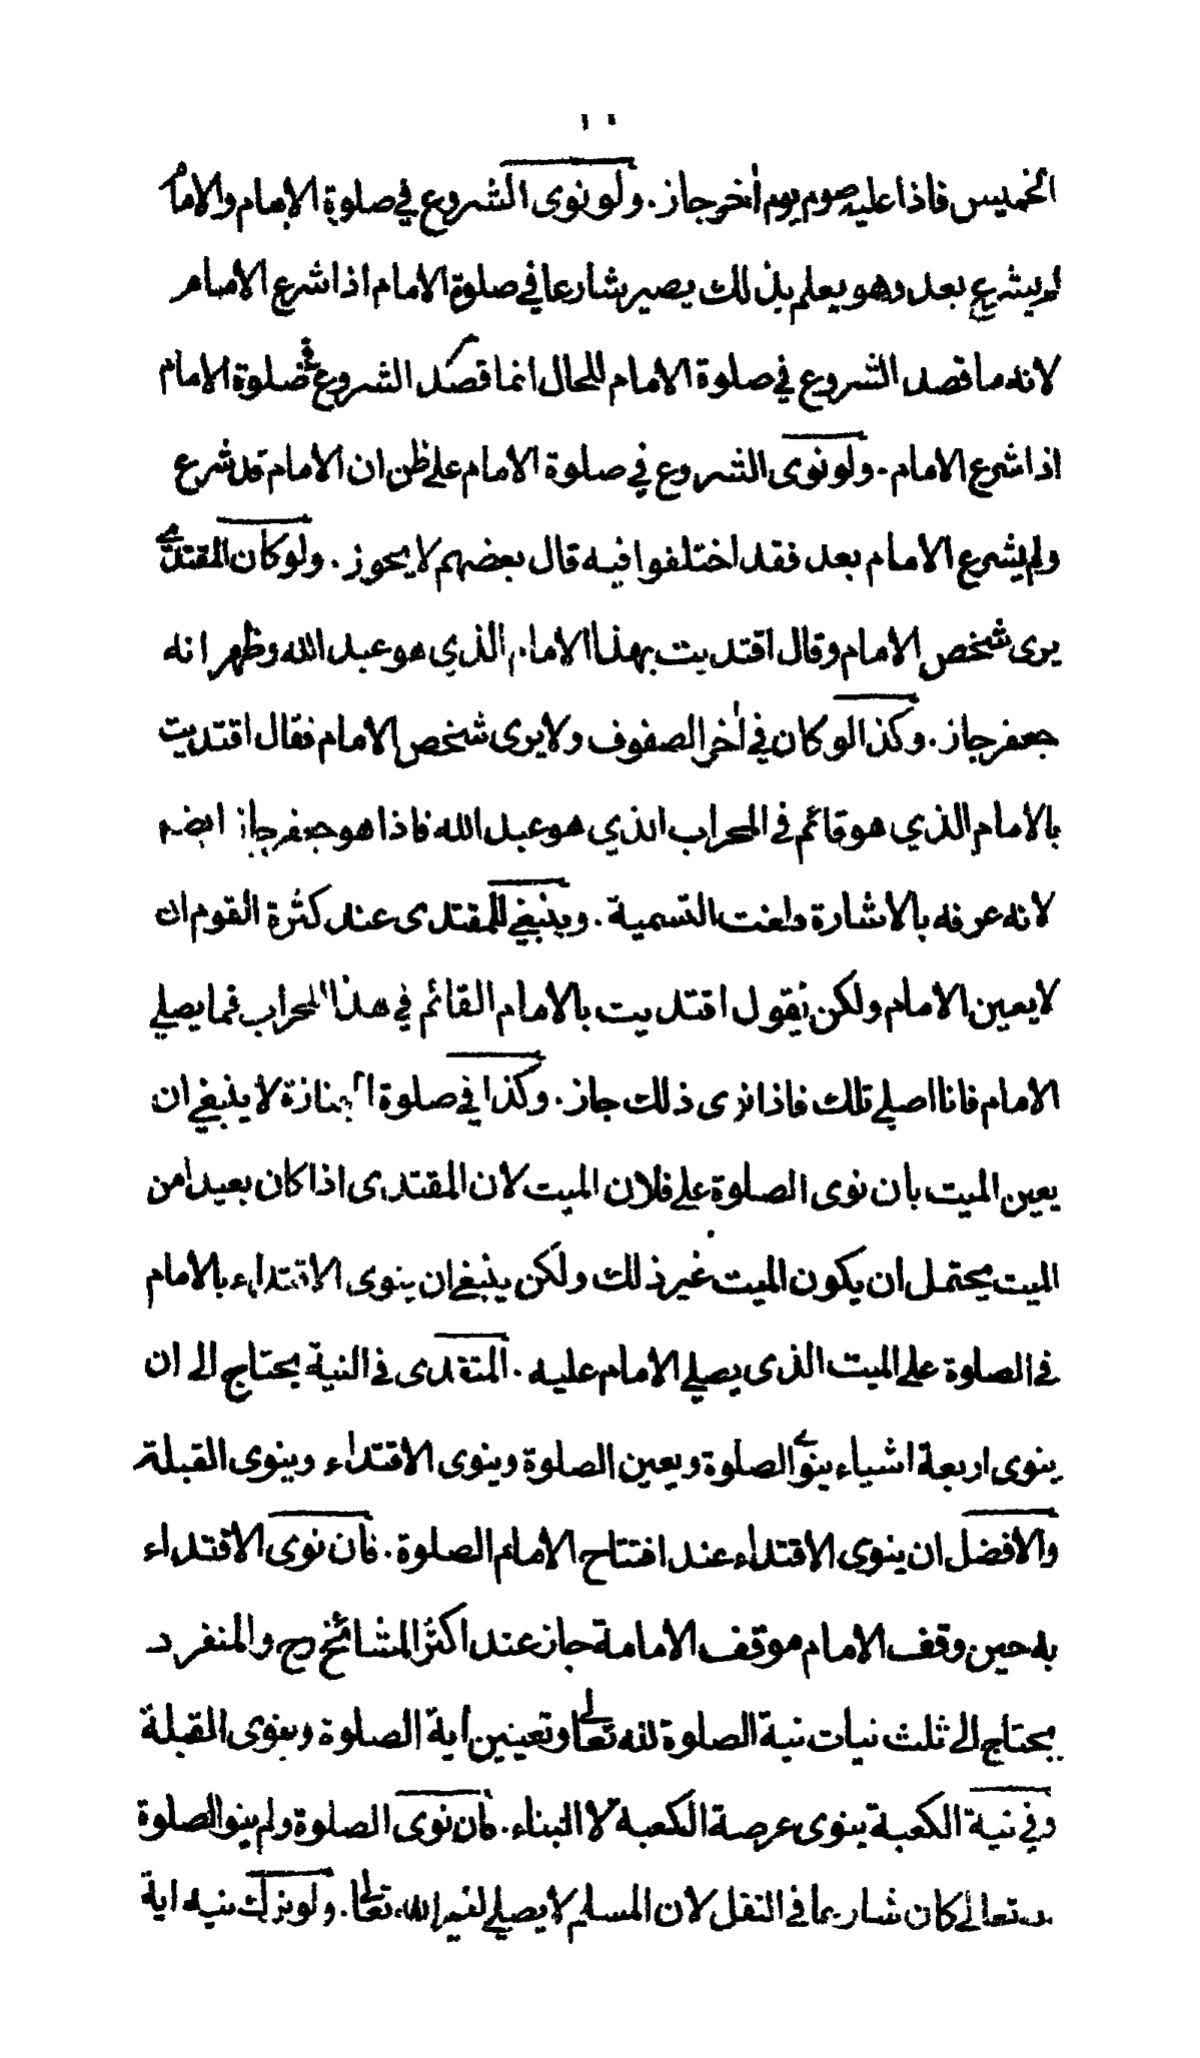 الخميس فاذا عليه صوم يوم أخر جاز . ولو نوى الشروع في صلوة الإمام والامام
لم يشرع بعد وهو يعلم بذلك يصير شارعا في صلوة الامام اذا شرع الامام
لانه ما قصد الشروع في صلوة الامام للحال انما قصد الشروع في صلوة الامام
اذا شرع الامام . ولو نوى الشروع في صلوة الامام على ظن ان الامام قد شرع
ولم يشرع الامام بعد فقد اختلفوا فيه قال بعضهم لا يجوز . ولو كان المقتدي
يرى شخص الامام وقال اقتديت بهذا الامام الذي هو عبد الله وظهر انه
جعفر جاز . وكذا لو كان في أخر الصفوف ولا يرى شخص الامام فقال اقتديت
بالامام الذي هو قائم في المحراب الذي هو عبد الله فاذا هو جعفر جاز ايضا
لانه عرفه بالاشارة فلغت التسمية . وينبغي للمقتدى عند كثرة القوم ان
لا يعين الامام ولكن يقول اقتديت بالامام القائم في هذا المحراب فما يصلي
الامام فانا اصلي تلك فاذا نوى ذلك جاز . وكذا في صلوة الجنازة لا ينبغي ان
يعين الميت بأن نوى الصلوة على فلان الميت لان المقتدى اذا كان بعيدا من
الميت يحتمل ان يكون الميت غير ذلك ولكن ينبغي ان ينوى الاقتداء بالامام
في الصلوة على الميت الذى يصلي الامام عليه . المقتدى في النية يحتاج الى ان
ينوى اربعة اشياء ينوي الصلوة ويعين الصلوة وينوى الاقتداء وينوى القبلة
والافضل ان ينوي الاقتداء عند افتتاح الامام الصلوة . فأن نوى الاقتداء
به حين وقف الامام موقف الامامة جاز عند اكثر المشائخ رح والمنفرد
يحتاج الى ثلث نيات نية الصلوة لله تعالى وتعيين أية الصلوة وينوى القبلة
وفي نية الكعبة ينوى عرصة الكعبة لا البناء . فأن نوى الصلوة ولم ينو الصلوة
لله تعالى كان شارعا في النفل لان المسلم لا يصلي لغير الله تعالى . ولو ترك نية اية